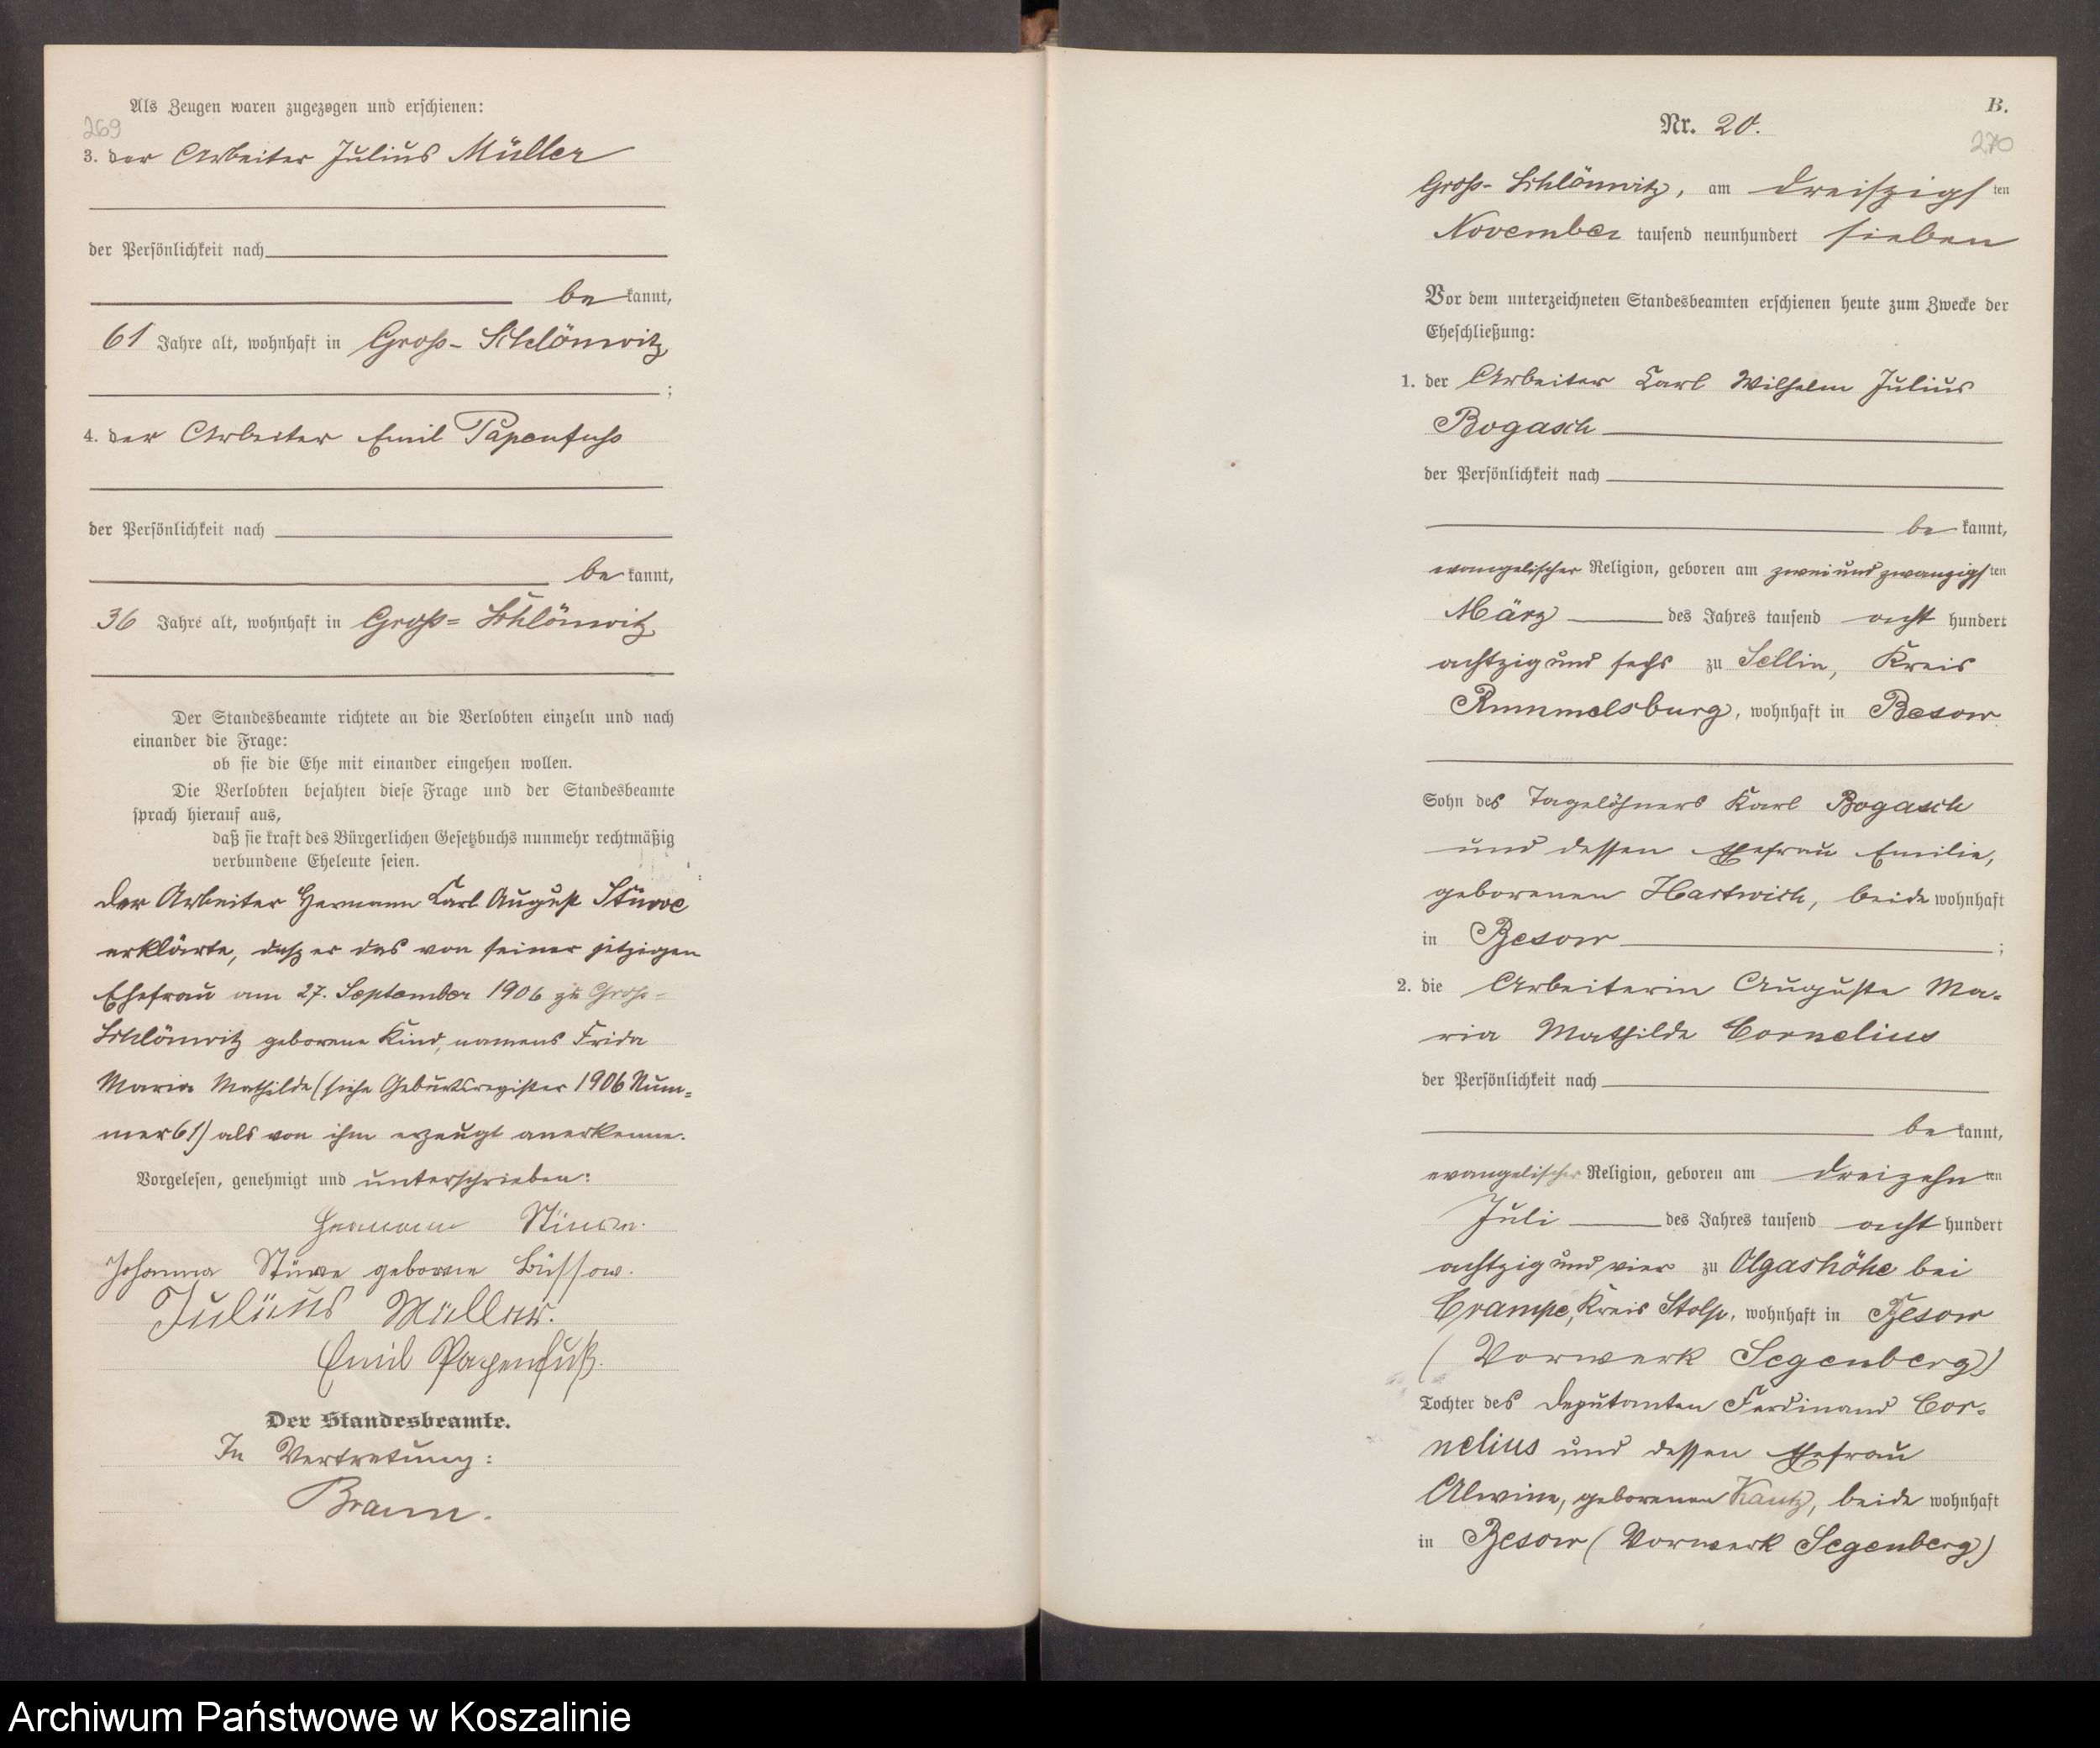 Als Zeugen waren zugezogen und erschienen:
269
3. der Arbeiter Julius Müller
der Persönlichkeit nach
be kannt,
61 Jahre alt, wohnhaft in Gross-Schlönwitz,
;
4. der Arbeiter Emil Papenfuss
der Persönlichkeit nach
be kannt,
36 Jahre alt, wohnhaft in Gross-Schlönwitz,
Der Standesbeamte richtete an die Verlobten einzeln und nach
einander die Frage:
ob sie die Ehe mit einander eingehen wollen.
Die Verlobten bejahten diese Frage und der Standesbeamte
sprach hierauf aus,
daß sie kraft des Bürgerlichen Gesetzbuchs nunmehr rechtmäßig
verbundene Eheleute seien.
Der Arbeiter Hermann Carl August Stüwe
erklärte, dasz er das von seiner jetzigen
Ehefrau am 27. September 1906 zu Gross-
Schlönwitz geborene Kind, namens Frida
Maria Mathilde (siehe Geburtsregister 1906 Num-
mer 61) als von ihm erzeugt anerkenne.
Vorgelesen, genehmigt und unterschrieben:
Hermann Stüwe.
Johanna Stüwe geborene Büssow.
Julius Müller.
Emil Papenfuß.
Der Standesbeamte.
In Vertretung:
Braun.
B.
Nr. 20.
270
Gross-Schlönwitz, am dreiszigsten
November tausend neunhundert sieben
Vor dem unterzeichneten Standesbeamten erschienen heute zum Zwecke der
Eheschließung:
1. der Arbeiter Carl Wilhelm Julius
Bogasch
der Persönlichkeit nach
be kannt,
evangelischer Religion, geboren am zweiundzwanzigsten
März des Jahres tausend acht hundert
achtzig und sechs zu Sellin, Kreis
Rummelsburg, wohnhaft in Besow
Sohn des Tagelöhners Karl Bogasch
und dessen Ehefrau Emilie,
geborenen Hartwich, beide wohnhaft
in Besow ;
2. die Arbeiterin Auguste Ma-
ria Mathilde Cornelius
der Persönlichkeit nach
be kannt,
evangelischer Religion, geboren am dreizehnten
Juli des Jahres tausend acht hundert
achtzig und vier zu Olgashöhe bei
Crampe, Kreis Stolp, wohnhaft in Besow
(Vorwerk Segenberg)
Tochter des Deputanten Ferdinand Cor-
nelius und dessen Ehefrau
Alwine, geborenen Kautz, beide wohnhaft
in Besow (Vorwerk Segenberg)
Archiwum Państwowe w Koszalinie